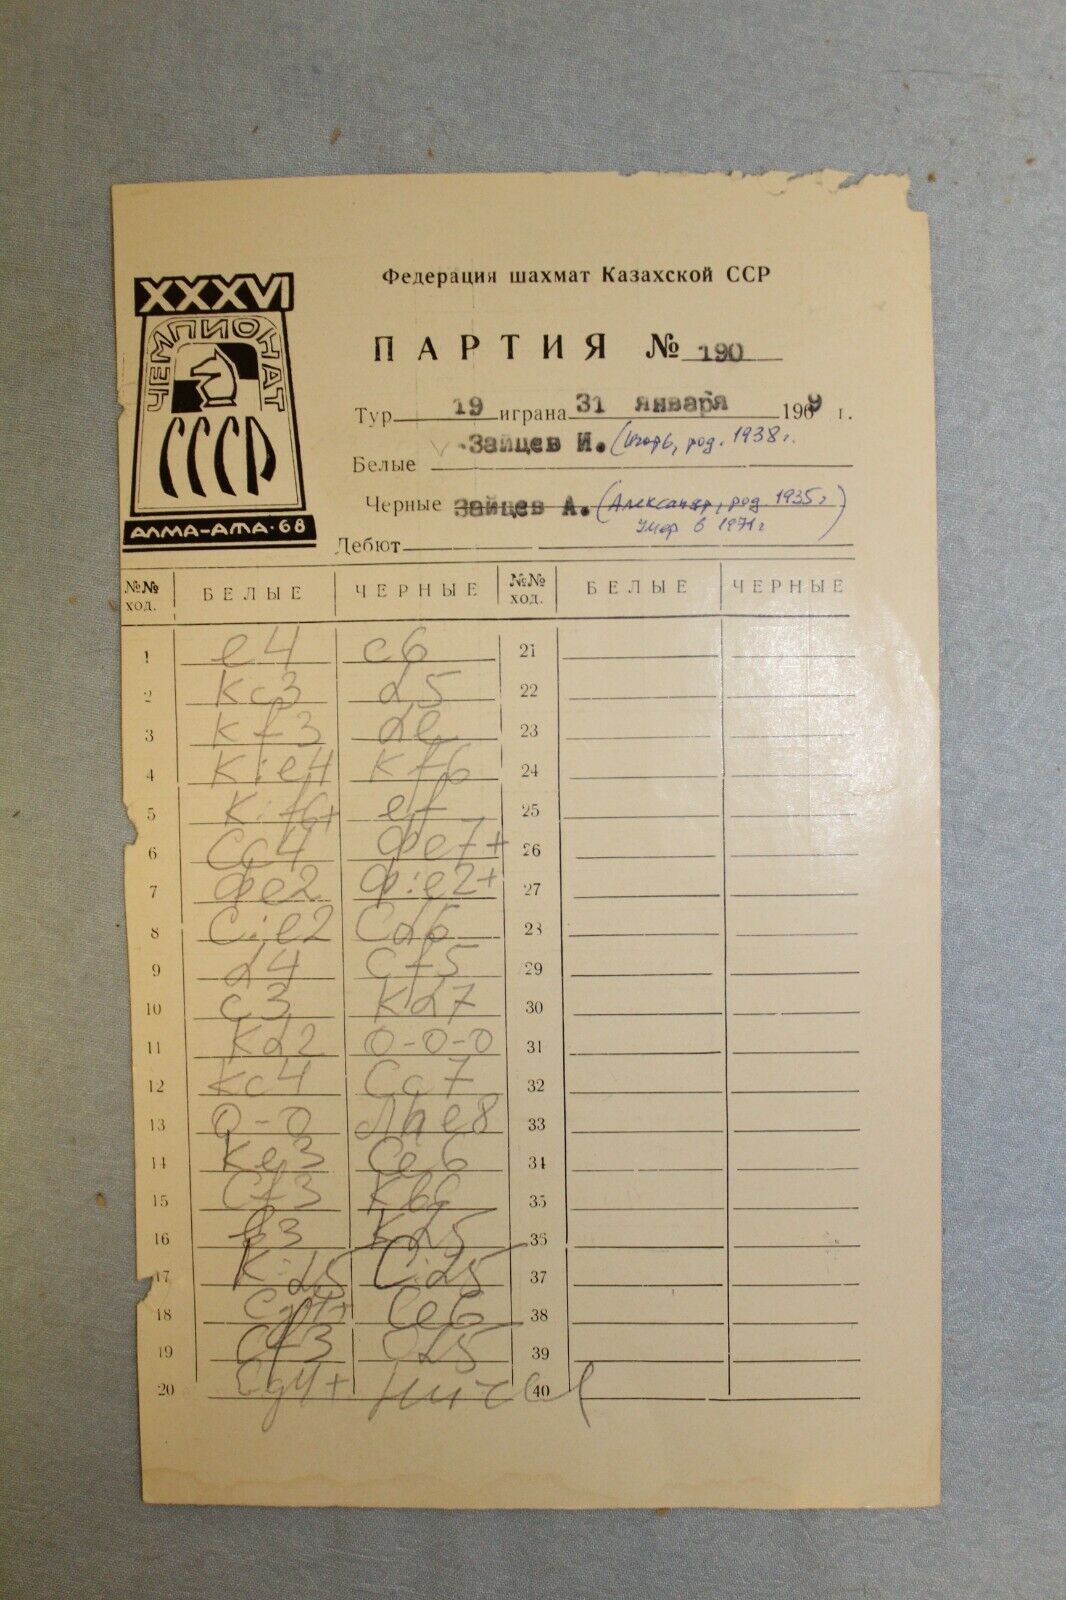 XXXVI
ЧЕМПИОНАТ
СССР
АЛМА-АТА·68
Федерация шахмат Казахской ССР
ПАРТИЯ № 190
Тур 19 играна 31 января 1969 г.
Белые Зайцев И. (Игорь, род. 1938 г.
Черные Зайцев А. (Александр, род 1935 г)
Умер в 1971 г
Дебют
№№ ход. БЕЛЫЕ ЧЕРНЫЕ №№ ход. БЕЛЫЕ ЧЕРНЫЕ
1 e4 c6 21
2 Kc3 d5 22
3 Kf3 de 23
4 K:e4 Kf6 24
5 K:f6+ ef 25
6 Cc4 Фe7+ 26
7 Фe2 Ф:e2+ 27
8 C:e2 Cd6 28
9 d4 Cf5 29
10 c3 Kd7 30
11 Kd2 0-0-0 31
12 Kc4 Cc7 32
13 0-0 Лhe8 33
14 Ke3 Ce6 34
15 Cf3 Kb6 35
16 b3 Kd5 36
17 K:d5 C:d5 37
18 Cg4+ Ce6 38
19 Cf3 Cd5 39
20 Cg4+ 40